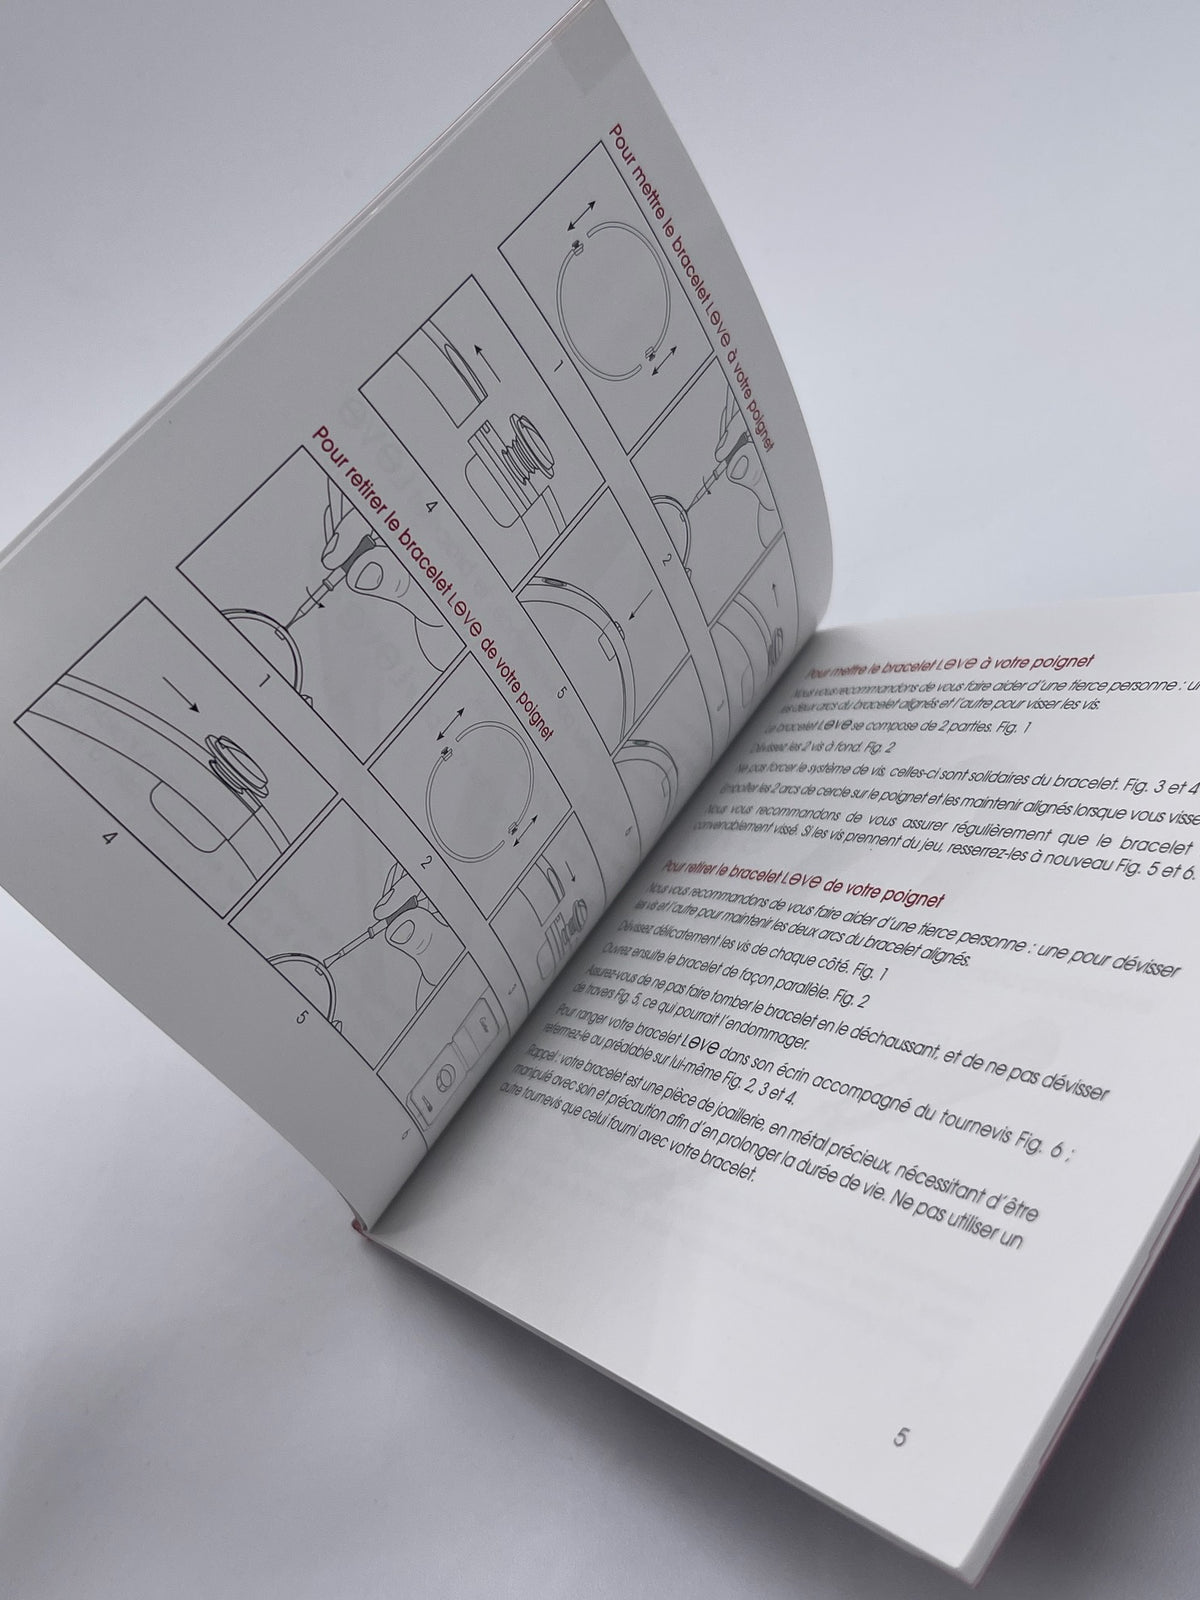 Pour mettre le bracelet LOVE à votre poignet
1
2
3
4
5
6
Pour retirer le bracelet LOVE de votre poignet
1
2
3
4
5
6
Pour mettre le bracelet LOVE à votre poignet
Nous vous recommandons de vous faire aider d'une tierce personne :
les deux arcs du bracelet alignés et l'autre pour visser les vis.
Le bracelet LOVE se compose de 2 parties. Fig. 1
Dévissez les 2 vis à fond. Fig. 2
Ne pas forcer le système de vis, celles-ci sont solidaires du bracelet. Fig. 3 et 4
Emboîter les 2 arcs de cercle sur le poignet et les maintenir alignés lorsque vous
Nous vous recommandons de vous assurer régulièrement que le bracelet
convenablement vissé. Si les vis prennent du jeu, resserrez-les à nouveau Fig. 5 et 6.
Pour retirer le bracelet LOVE de votre poignet
Nous vous recommandons de vous faire aider d'une tierce personne : une pour dévisser
les vis et l'autre pour maintenir les deux arcs du bracelet alignés.
Dévissez délicatement les vis de chaque côté. Fig. 1
Ouvrez ensuite le bracelet de façon parallèle. Fig. 2
Assurez-vous de ne pas faire tomber le bracelet en le déchaussant, et de ne pas dévisser
de travers Fig. 5, ce qui pourrait l'endommager.
Pour ranger votre bracelet LOVE dans son écrin accompagné du tournevis Fig. 6 ;
refermez-le au préalable sur lui-même Fig. 2, 3 et 4.
Rappel : votre bracelet est une pièce de joaillerie, en métal précieux, nécessitant d'être
manipulé avec soin et précaution afin d'en prolonger la durée de vie. Ne pas utiliser un
autre tournevis que celui fourni avec votre bracelet.
5